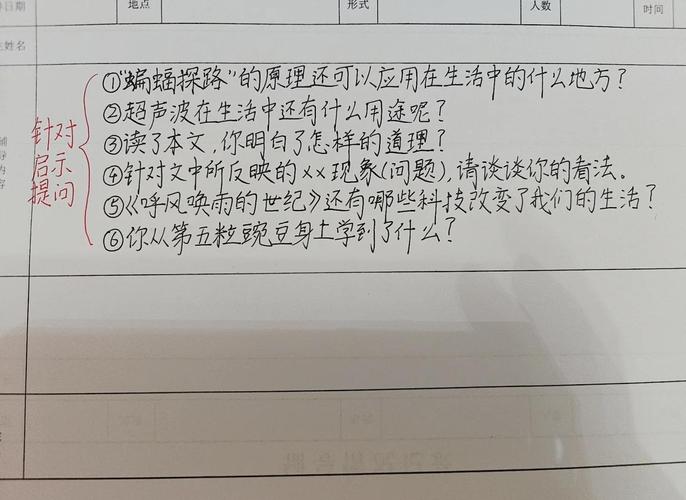 日期
地点
形式
人数
时间
姓名
针对
启示
提问
①“蝙蝠探路”的原理还可以应用在生活中的什么地方？
②超声波在生活中还有什么用途呢？
③读了本文，你明白了怎样的道理？
④针对文中所反映的××现象(问题)，请谈谈你的看法。
⑤《呼风唤雨的世纪》还有哪些科技改变了我们的生活？
⑥你从第五粒豌豆身上学到了什么？